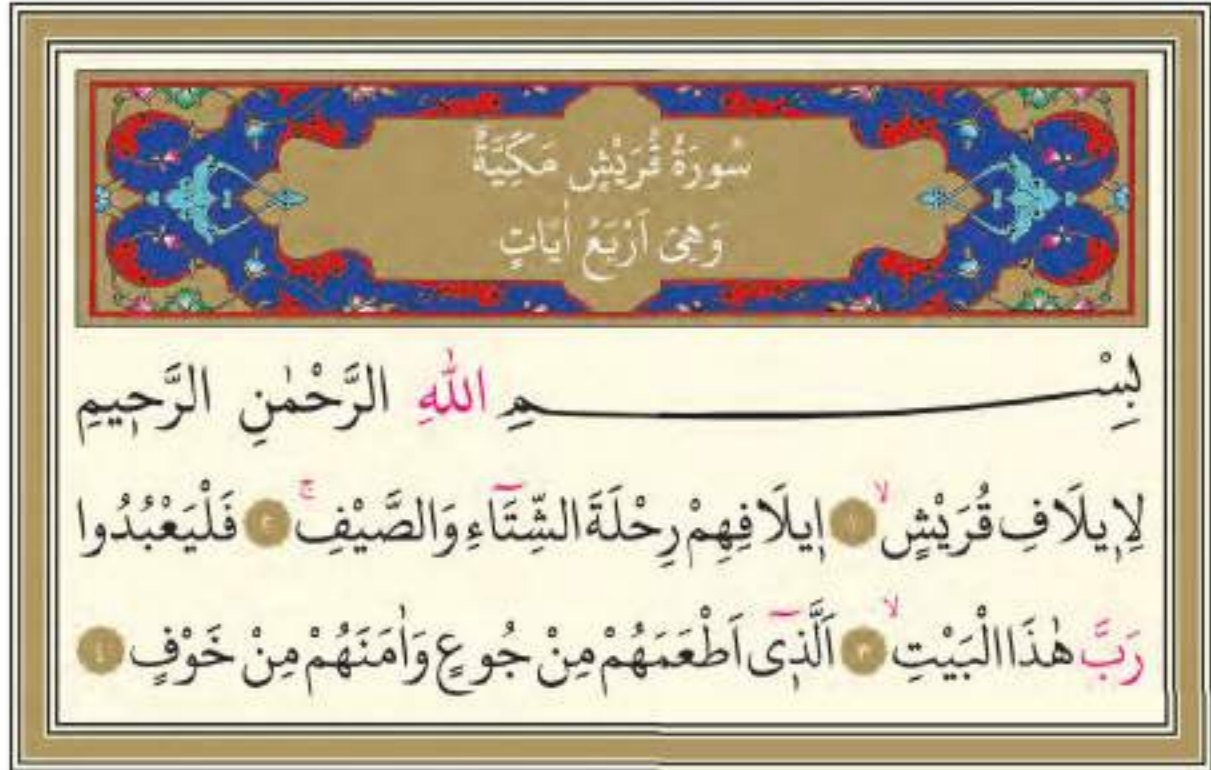 سُورَةُ قُرَيْشٍ مَكِّيَّةٌ
وَهِىَ اَرْبَعُ اٰيَاتٍ
بِسْمِ اللّٰهِ الرَّحْمٰنِ الرَّحٖيمِ
لِاٖيلَافِ قُرَيْشٍۙ ١ اٖيلَافِهِمْ رِحْلَةَ الشِّتَٓاءِ وَالصَّيْفِۚ ٢ فَلْيَعْبُدُوا
رَبَّ هٰذَا الْبَيْتِۙ ٣ اَلَّذٖٓى اَطْعَمَهُمْ مِنْ جُوعٍ وَاٰمَنَهُمْ مِنْ خَوْفٍ ٤